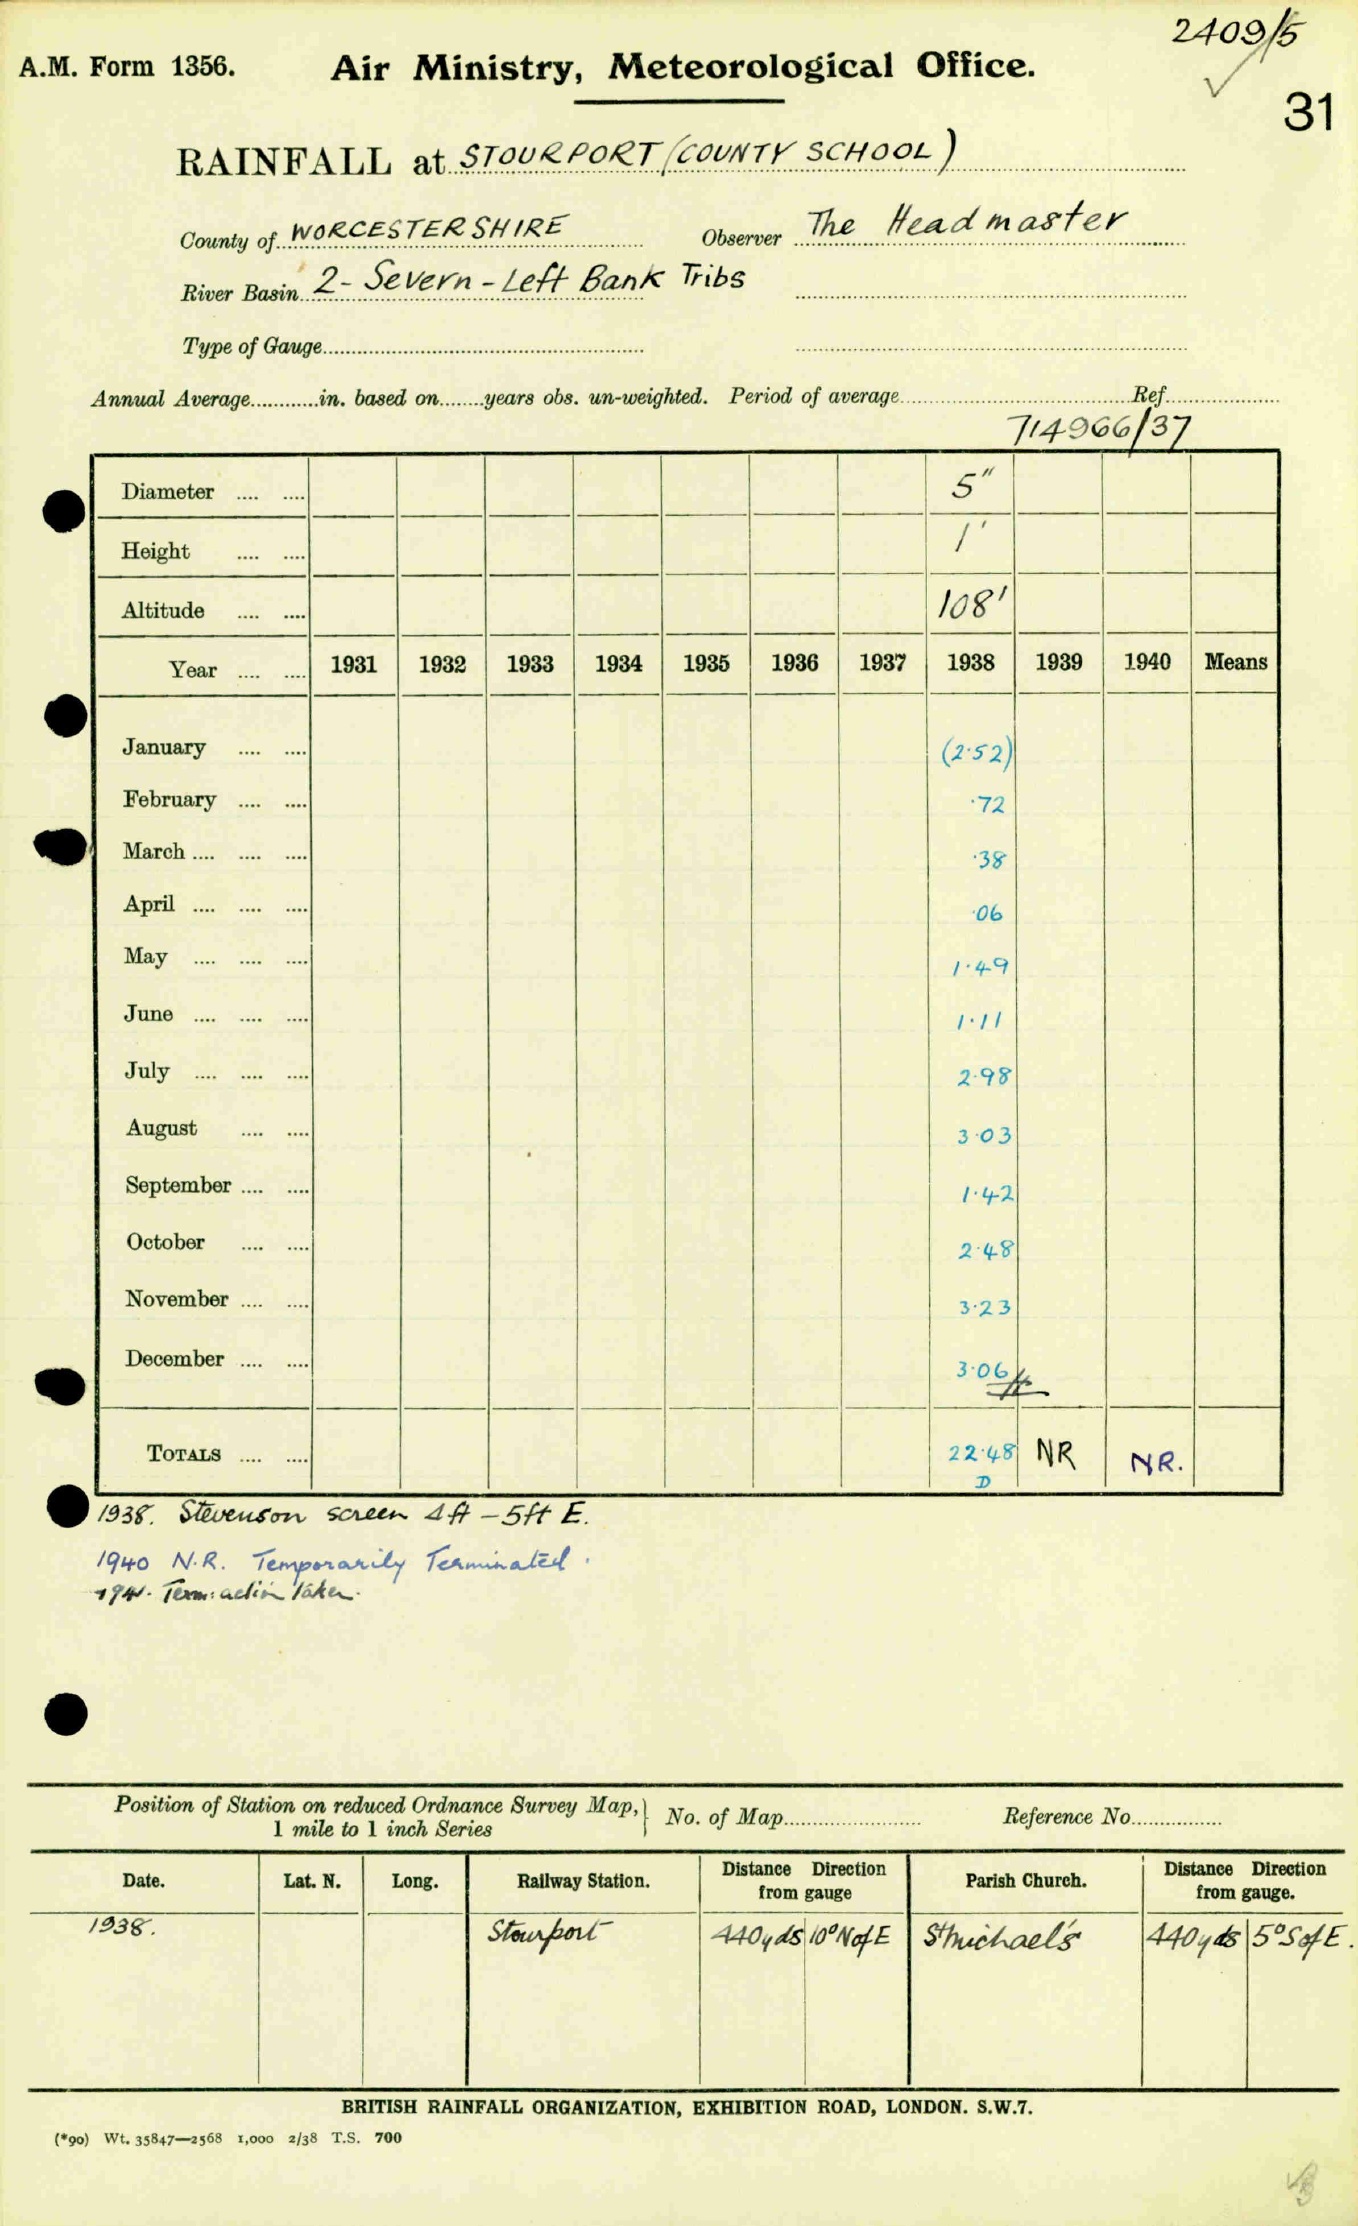 2409/5
A.M. Form 1356. Air Ministry, Meteorological Office.
31
RAINFALL at STOURPORT (COUNTY SCHOOL)
County of WORCESTERSHIRE Observer The Headmaster
River Basin 2 - Severn - Left Bank Tribs
Type of Gauge
Annual Average............in. based on........years obs. un-weighted. Period of average............Ref............
714966/37
Diameter .... .... 5"
Height .... .... 1'
Altitude .... .... 108'
Year .... .... 1931 1932 1933 1934 1935 1936 1937 1938 1939 1940 Means
January .... .... (2·52)
February .... .... ·72
March .... .... .... ·38
April .... .... .... ·06
May .... .... .... 1·49
June .... .... .... 1·11
July .... .... .... 2·98
August .... .... 3·03
September .... .... 1·42
October .... .... 2·48
November .... .... 3·23
December .... .... 3·06
TOTALS .... .... 22·48 NR NR.
D
1938. Stevenson screen 4ft - 5ft E.
1940 N.R. Temporarily Terminated.
1941. Term: action taken.
Position of Station on reduced Ordnance Survey Map, 1 mile to 1 inch Series No. of Map............ Reference No............
Date. Lat. N. Long. Railway Station. Distance Direction from gauge Parish Church. Distance Direction from gauge.
1938. Stourport 440yds 10° N of E St Michael's 440yds 5° S of E.
BRITISH RAINFALL ORGANIZATION, EXHIBITION ROAD, LONDON. S.W.7.
(*90) Wt. 35847—2568 1,000 2/38 T.S. 700